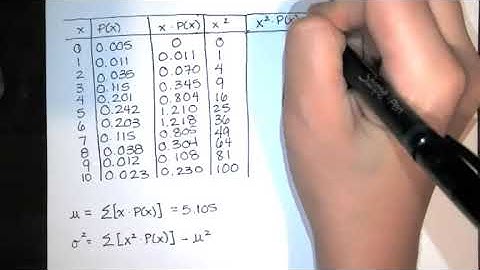 x P(x) x · P(x) x² x² · P(x)
0 0.005 0 0
1 0.011 0.011 1
2 0.035 0.070 4
3 0.115 0.345 9
4 0.201 0.804 16
5 0.242 1.210 25
6 0.203 1.218 36
7 0.115 0.805 49
8 0.038 0.304 64
9 0.012 0.108 81
10 0.023 0.230 100
μ = Σ[x · P(x)] = 5.105
σ² = Σ[x² · P(x)] - μ²